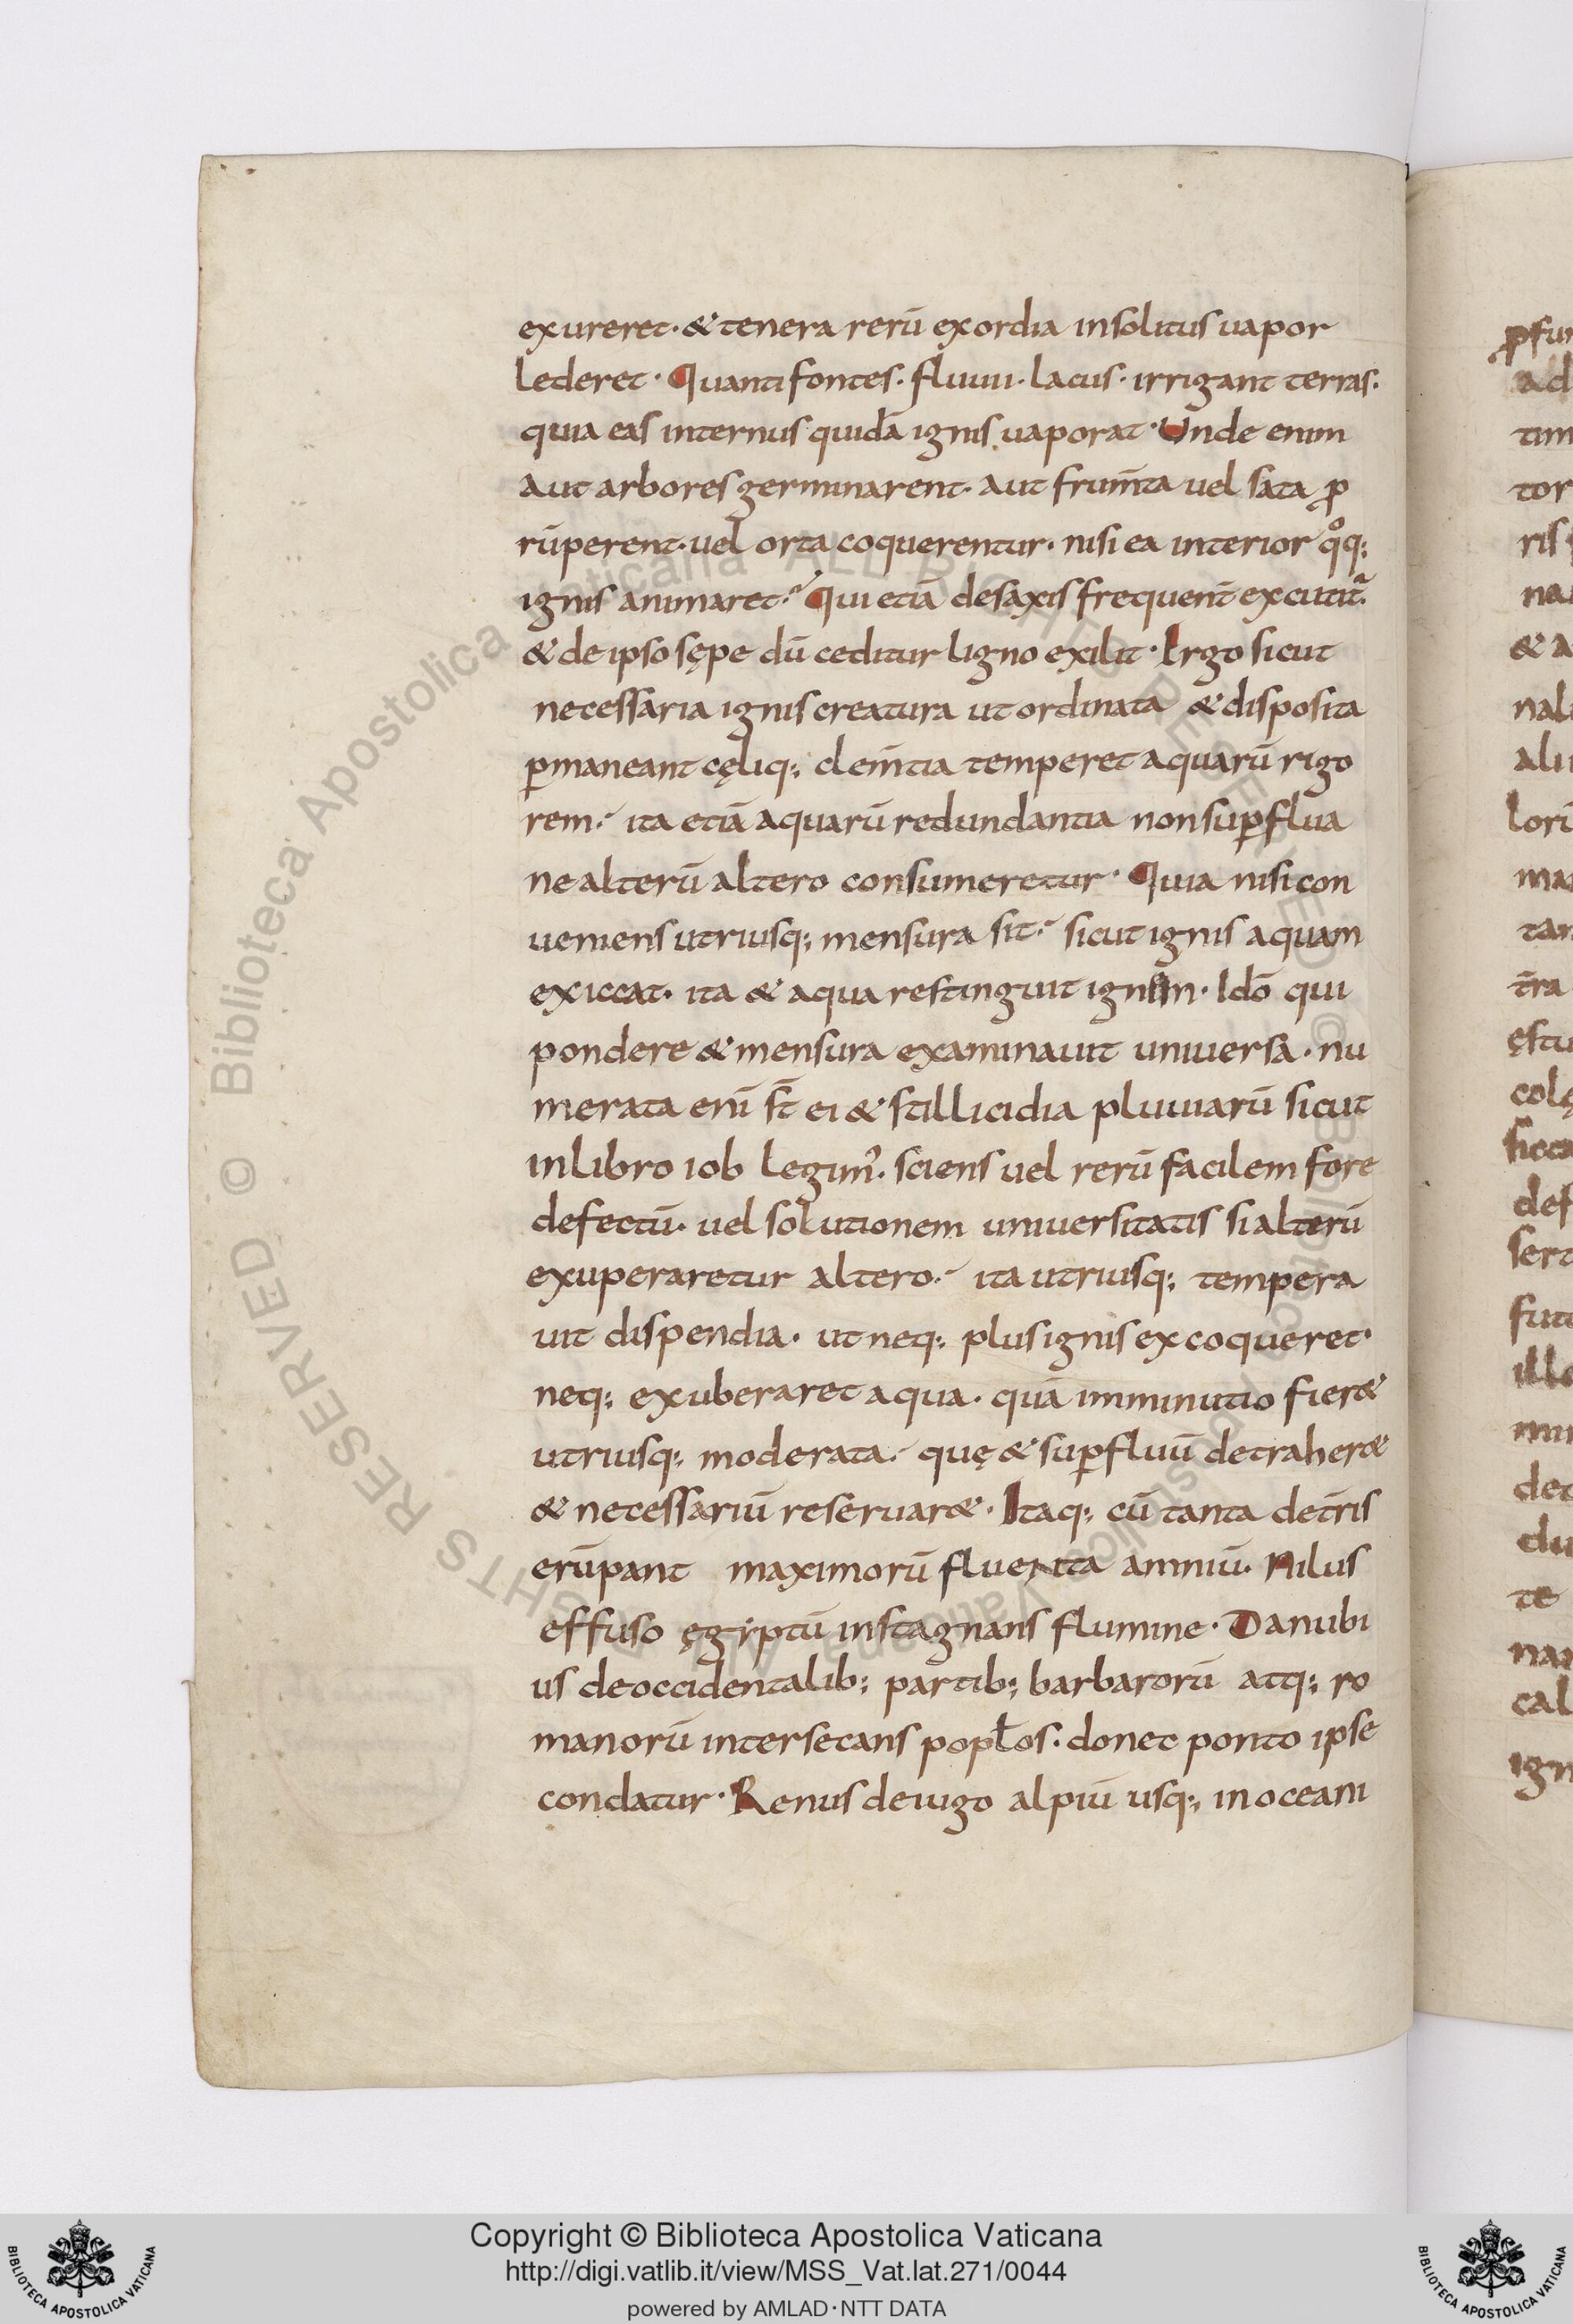 exureret · & tenera rerū exordia insolitus uapor
lederet · Quanti fontes · fluuii · lacus · irrigant terras ·
quia eas internus quidā ignis uaporat · Unde enim
aut arbores germinarent · aut frum̄ta uel sata ꝓ
rūperent · uel orta coquerentur · nisi ea interior qͦq;
ignis animaret · Qui etiā de saxis frequent̄ excutit᷑
& de ipso sępe dū ceditur ligno exilit · Ergo sicut
necessaria ignis creatura ut ordinata & disposita
ꝑmaneant cęliq; clem̄tia temperet aquarū rigo
rem · ita etiā aquarū redundantia non suꝑflua
ne alterū altero consumeretur · Quia nisi con
ueniens utriusq; mensura sit · sicut ignis aquam
exiccat · ita & aqua restinguit ignem · Idō qui
pondere & mensura examinauit uniuersa · nu
merata eni̅ st̄ ei & stillicidia pluuiarū sicut
in libro iob legim᾽ · sciens uel rerū facilem fore
defectū · uel solutionem uniuersitatis si alterū
exuperaretur altero · ita utriusq; tempera
uit dispendia · ut neq; plus ignis excoqueret ·
neq; exuberaret aqua · quā imminutio fier&
utriusq; moderata · quę & suꝑfluū detraher&
& necessariū reseruar& · Itaq; cū tanta de tr̄is
erūpant maximorū fluenta amniū · Nilus
effuso ęgẏptū instagnans flumine · Danubi
us de occidentalib; partib; barbarorū atq; ro
manorū intersecans popl̄os · donec ponto ipse
condatur · Renus de iugo alpiū usq; in oceani
ꝓfun
ad
tim
tor
ris
na
& a
nal
ali
lori
ma
tan
tr̄a
ęstu
colę
sicca
def
sert
futu
illo
mu
det
du
te
nan
cal
ign
© Biblioteca Apostolica Vaticana ALL RIGHTS RESERVED
© Biblioteca Apostolica Vaticana ALL RIGHTS RESERVED
Copyright © Biblioteca Apostolica Vaticana
http://digi.vatlib.it/view/MSS_Vat.lat.271/0044
powered by AMLAD·NTT DATA
BIBLIOTECA APOSTOLICA VATICANA
BIBLIOTECA APOSTOLICA VATICANA